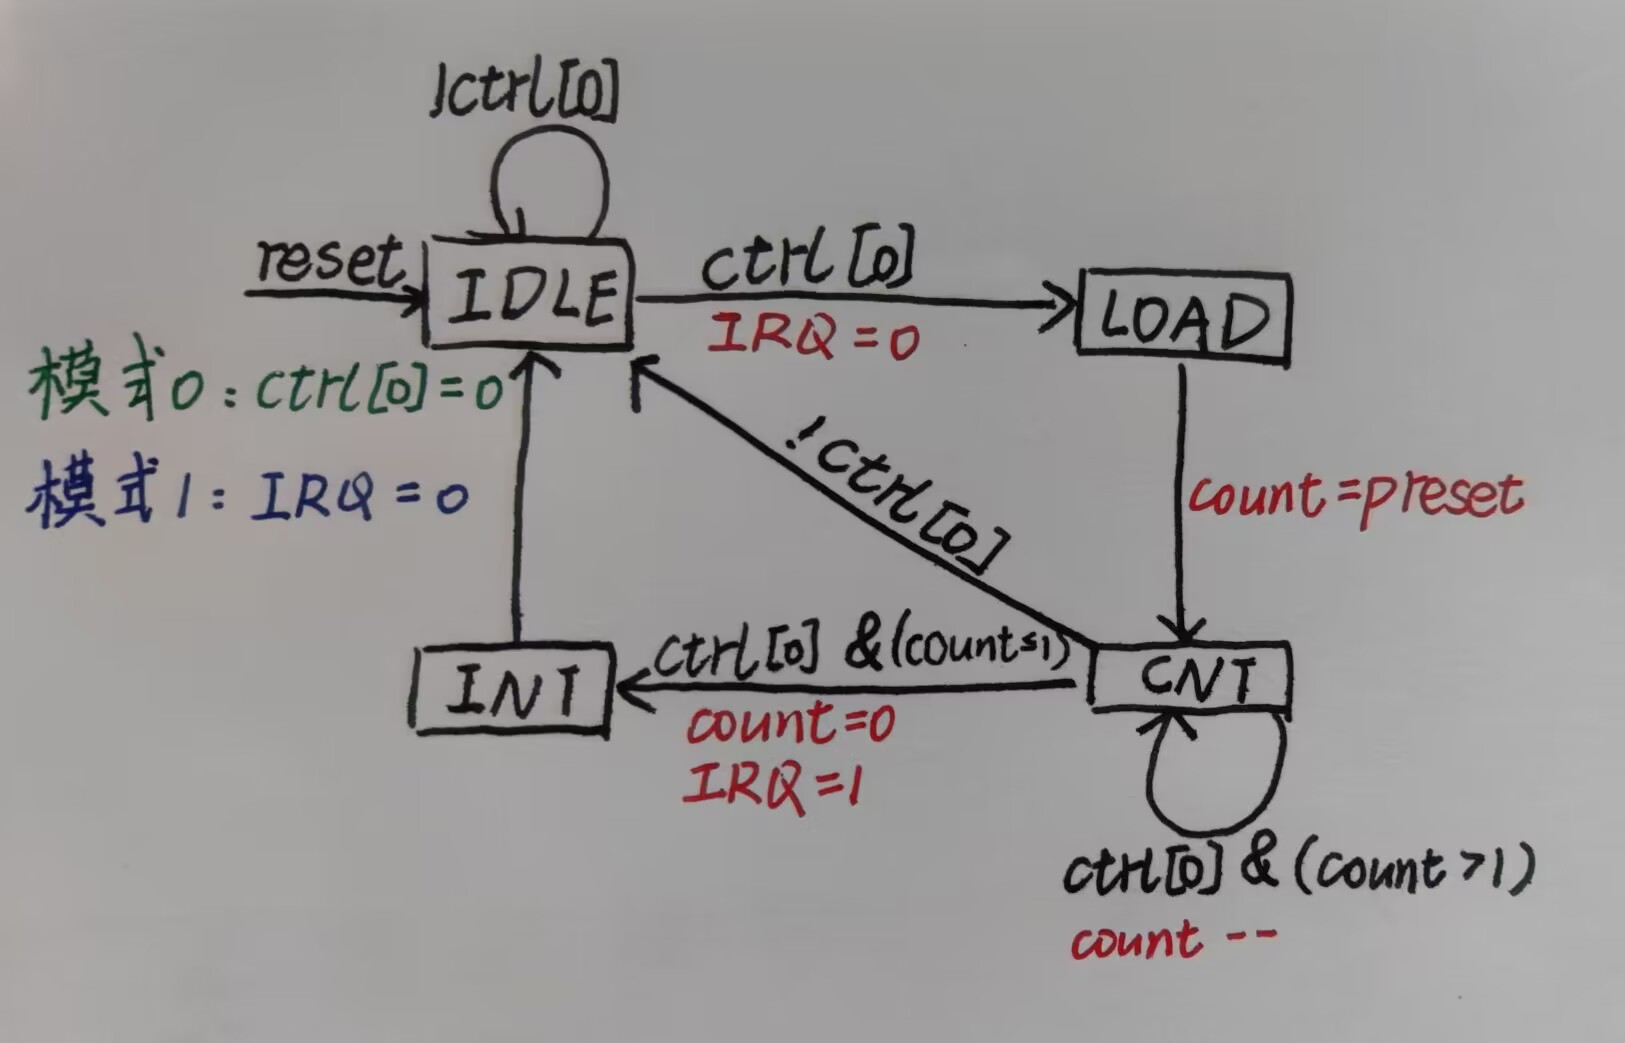 !ctrl[0]
reset
IDLE
ctrl[0]
IRQ=0
LOAD
模式0:ctrl[0]=0
模式1:IRQ=0
!ctrl[0]
count=preset
INT
ctrl[0] &(count≤1)
count=0
IRQ=1
CNT
ctrl[0] & (count>1)
count --